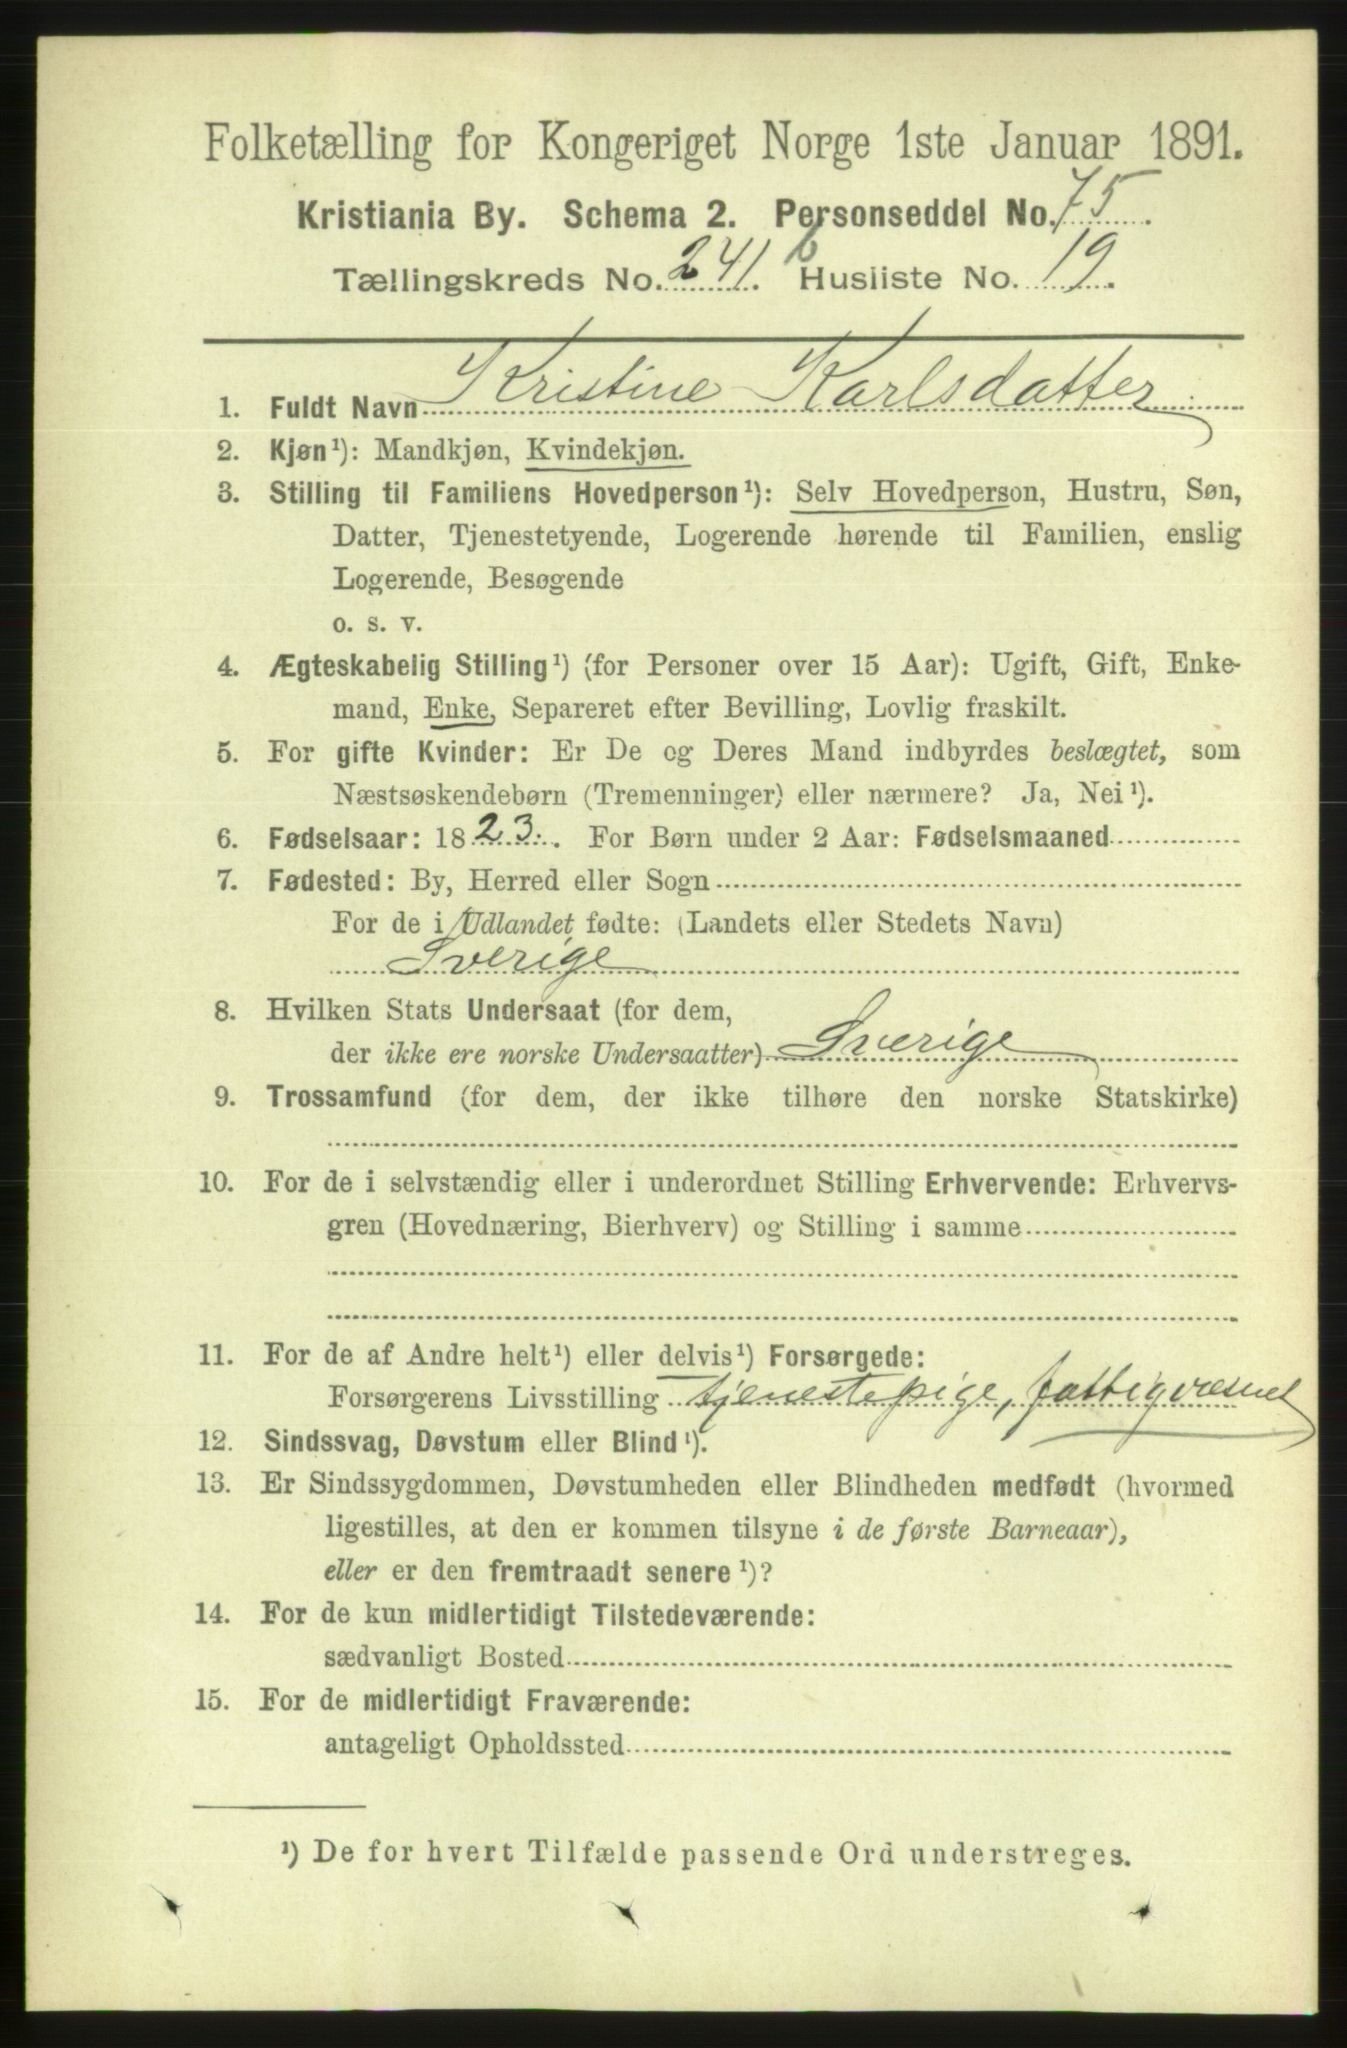 Folketælling for Kongeriget Norge 1ste Januar 1891.
Kristiania By. Schema 2. Personseddel No. 75.
Tællingskreds No. 241 b. Husliste No. 19.
1. Fuldt Navn Kristine Karlsdatter
2. Kjøn¹): Mandkjøn, Kvindekjøn.
3. Stilling til Familiens Hovedperson¹): Selv Hovedperson, Hustru, Søn,
Datter, Tjenestetyende, Logerende hørende til Familien, enslig
Logerende, Besøgende
o. s. v.
4. Ægteskabelig Stilling¹) (for Personer over 15 Aar): Ugift, Gift, Enke-
mand, Enke, Separeret efter Bevilling, Lovlig fraskilt.
5. For gifte Kvinder: Er De og Deres Mand indbyrdes beslægtet, som
Næstsøskendebørn (Tremenninger) eller nærmere? Ja, Nei¹).
6. Fødselsaar: 1823. For Børn under 2 Aar: Fødselsmaaned
7. Fødested: By, Herred eller Sogn
For de i Udlandet fødte: (Landets eller Stedets Navn)
Sverige
8. Hvilken Stats Undersaat (for dem,
der ikke ere norske Undersaatter) Sverige
9. Trossamfund (for dem, der ikke tilhøre den norske Statskirke)
10. For de i selvstændig eller i underordnet Stilling Erhvervende: Erhvervs-
gren (Hovednæring, Bierhverv) og Stilling i samme
11. For de af Andre helt¹) eller delvis¹) Forsørgede:
Forsørgerens Livsstilling tjenestepige, fattigvæsnet
12. Sindssvag, Døvstum eller Blind¹).
13. Er Sindssygdommen, Døvstumheden eller Blindheden medfødt (hvormed
ligestilles, at den er kommen tilsyne i de første Barneaar),
eller er den fremtraadt senere¹)?
14. For de kun midlertidigt Tilstedeværende:
sædvanligt Bosted
15. For de midlertidigt Fraværende:
antageligt Opholdssted
¹) De for hvert Tilfælde passende Ord understreges.